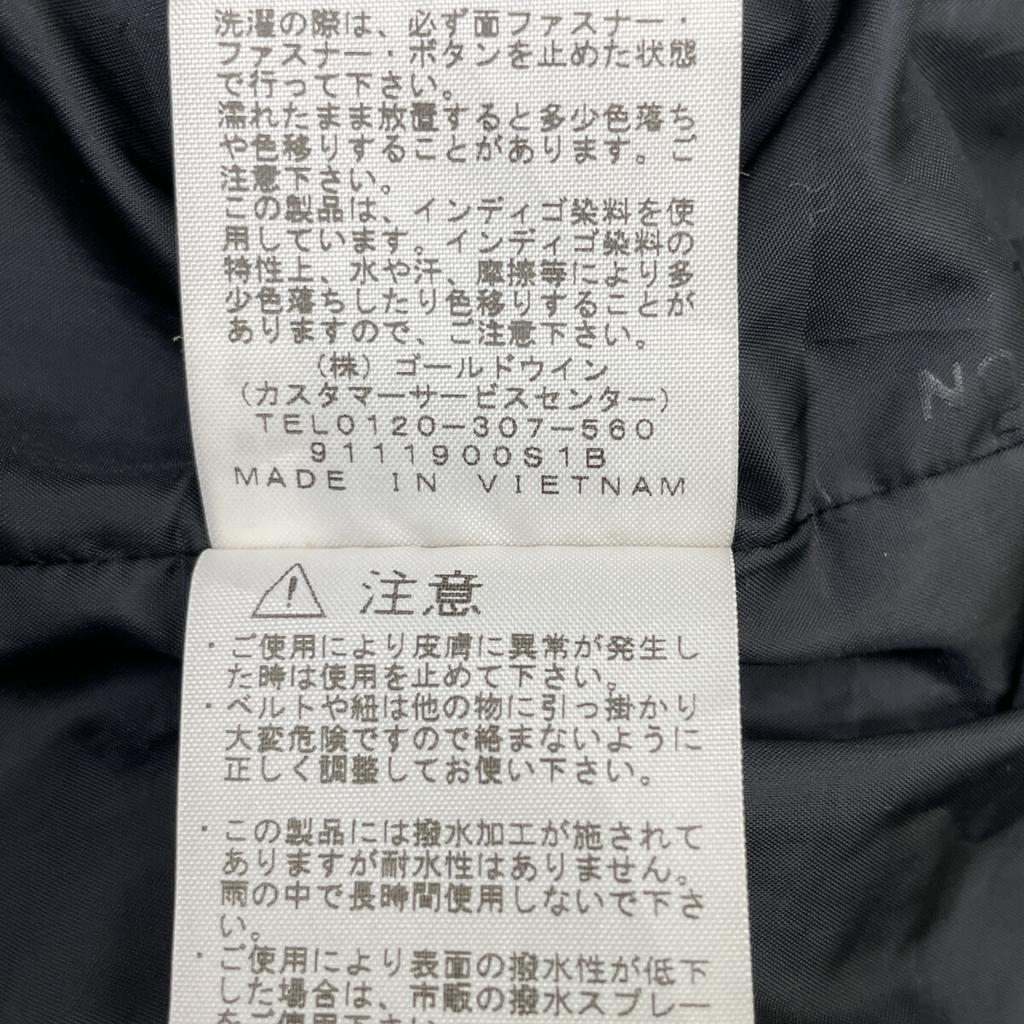 洗濯の際は、必ず面ファスナー・
ファスナー・ボタンを止めた状態
で行って下さい。
濡れたまま放置すると多少色落ち
や色移りすることがあります。ご
注意下さい。
この製品は、インディゴ染料を使
用しています。インディゴ染料の
特性上、水や汗、摩擦等により多
少色落ちしたり色移りすることが
ありますので、ご注意下さい。
(株)ゴールドウイン
(カスタマーサービスセンター)
TEL0120-307-560
9111900S1B
MADE IN VIETNAM
注意
・ご使用により皮膚に異常が発生し
た時は使用を止めて下さい。
・ベルトや紐は他の物に引っ掛かり
大変危険ですので絡まないように
正しく調整してお使い下さい。
・この製品には撥水加工が施されて
ありますが耐水性はありません。
雨の中で長時間使用しないで下さ
い。
・ご使用により表面の撥水性が低下
した場合は、市販の撥水スプレー
をご使用下さい。